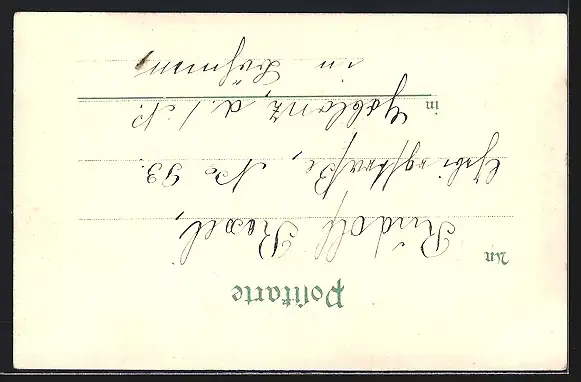 Postkarte
An Rudolf Rexel,
Gebirgstraße, No 93.
in Gablonz, a. / N.
in Böhmen,